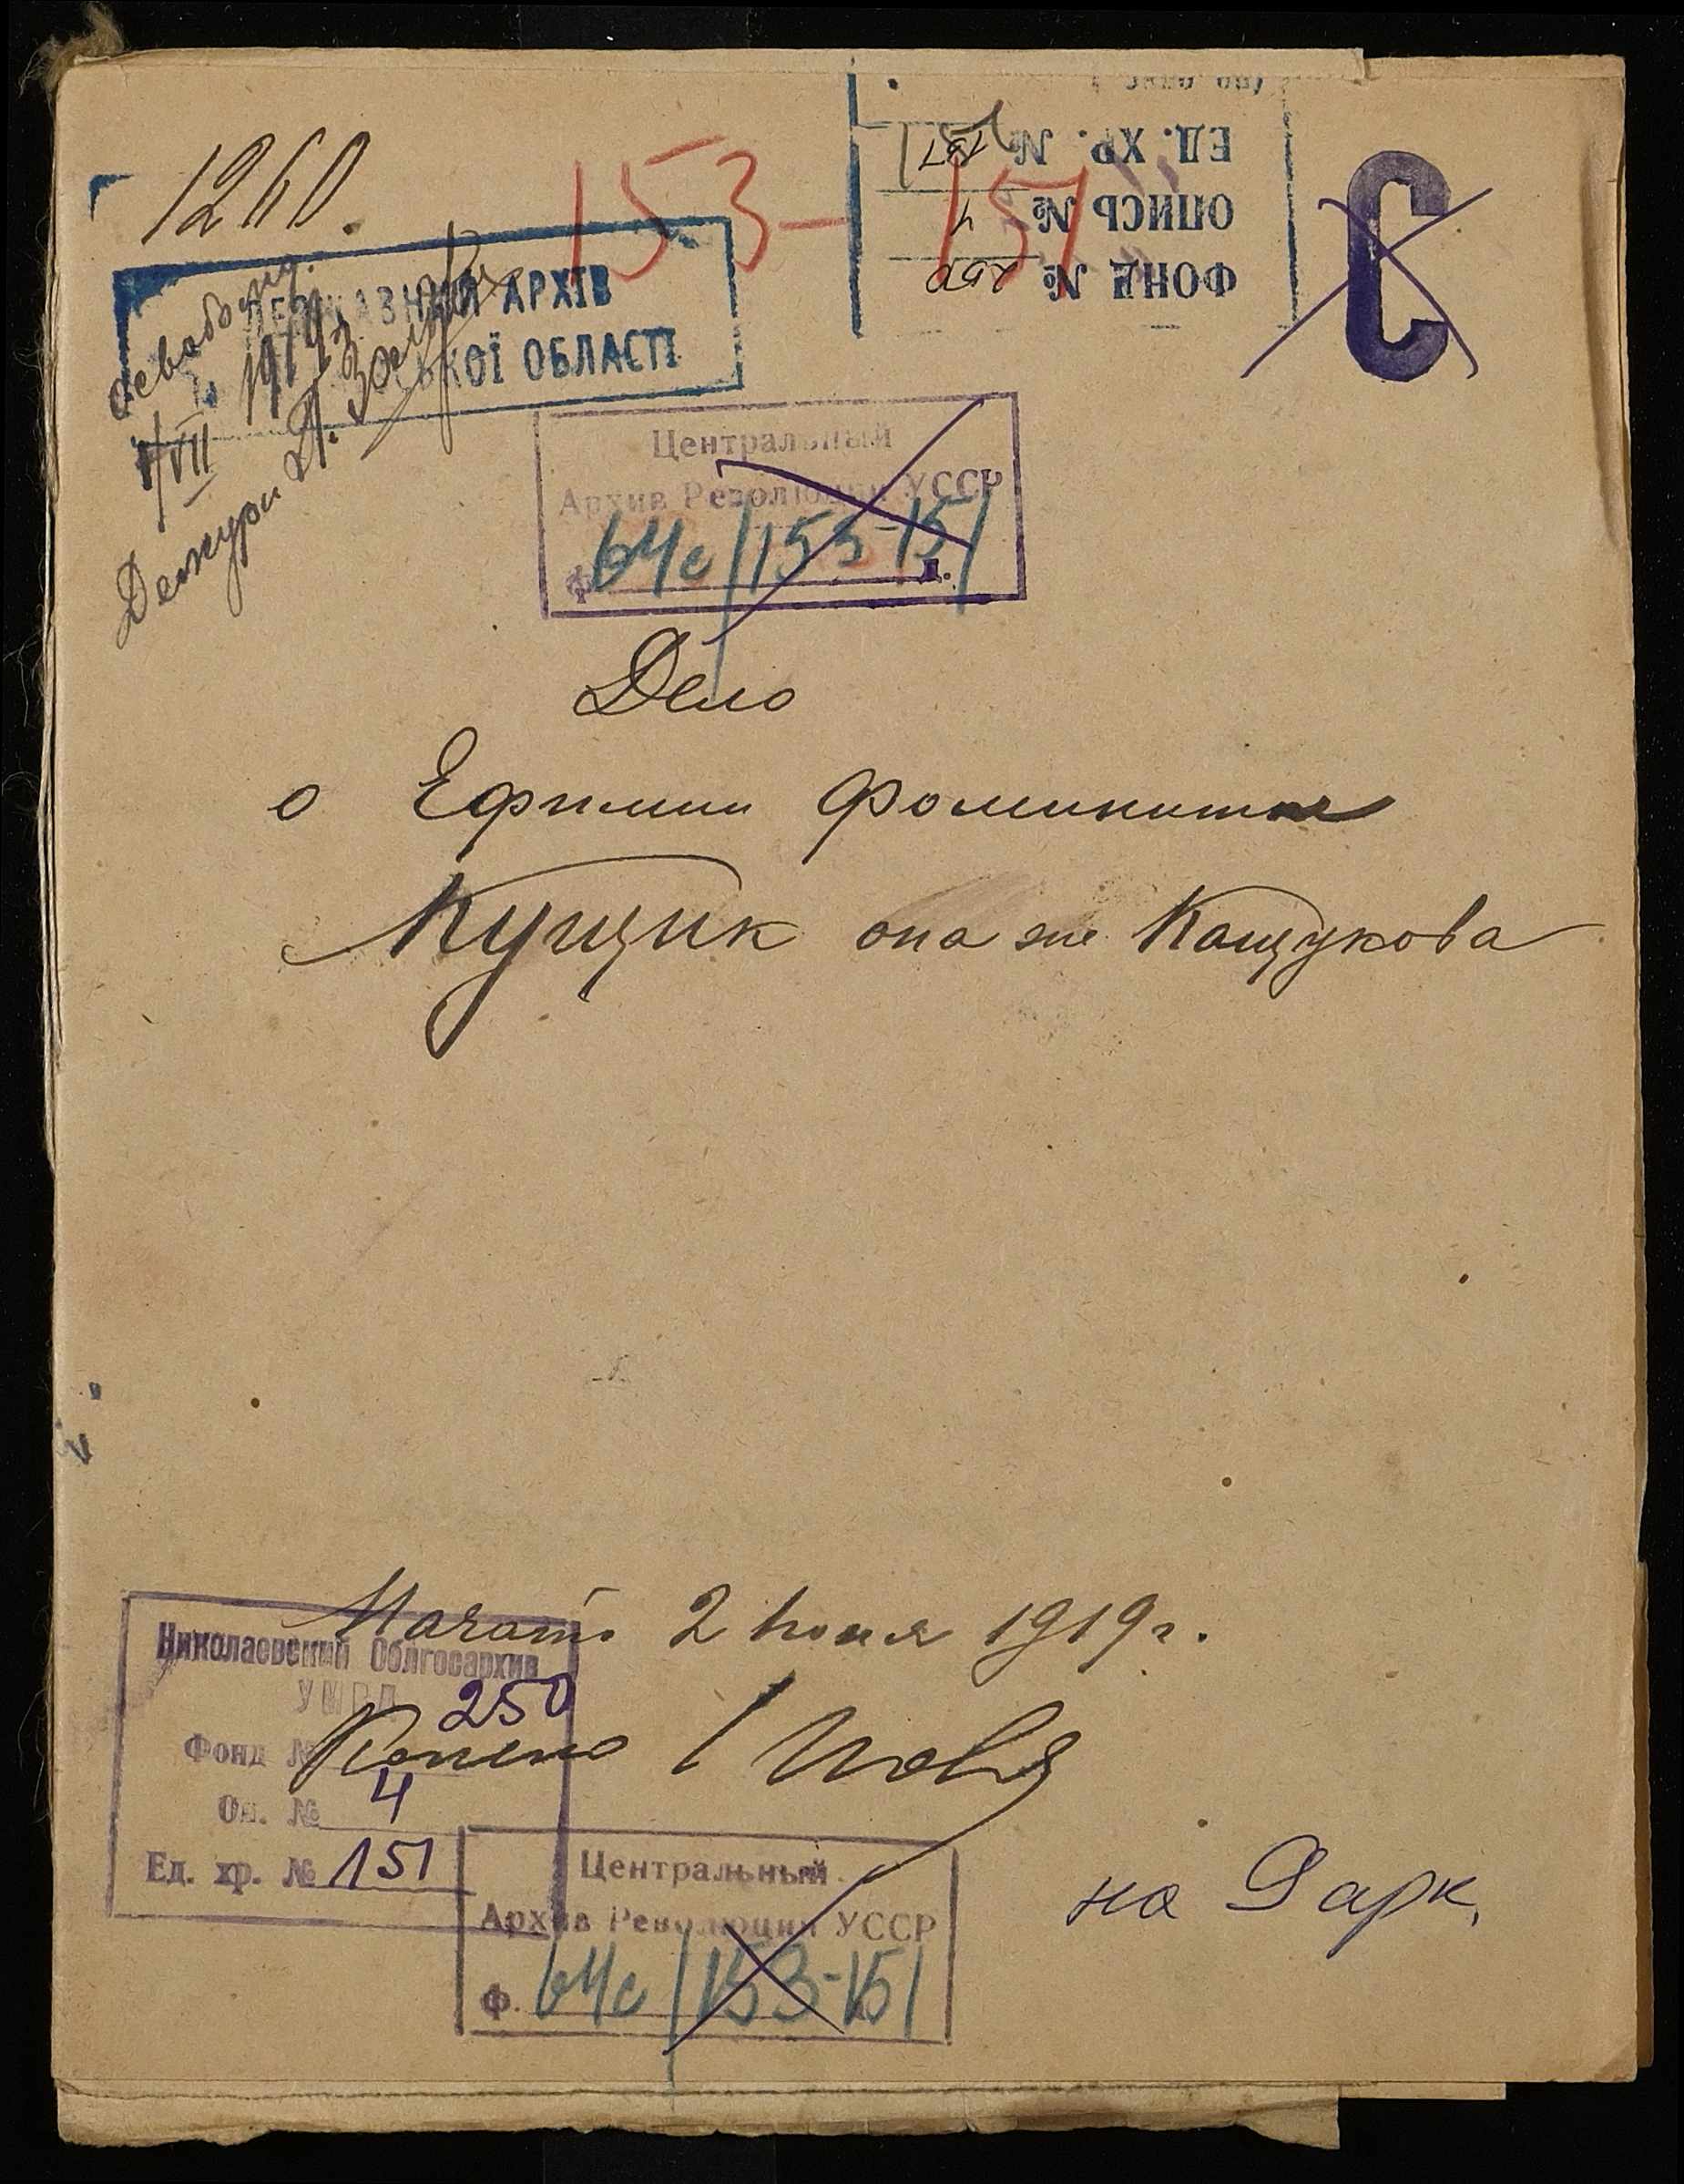 1260.
153-151
ЕД. ХР. № 151
ОПИСЬ № 4
ФОНД № 250
С
ДЕРЖАВНИЙ АРХІВ
ОБЛАСТІ
освобожд.
1/VII 1919
Центральный
Архив Революции УССР
Ф. 64с/153-151
Дело
о Ефимии Фоминишне
Кущик она же Кащукова
Начато 2 Июня 1919 г.
Николаевский Облгосархив
УМВД
Фонд № 250
Оп. № 4
Ед. хр. № 151
Центральный
Архив Революции УССР
Ф. 64с/153-151